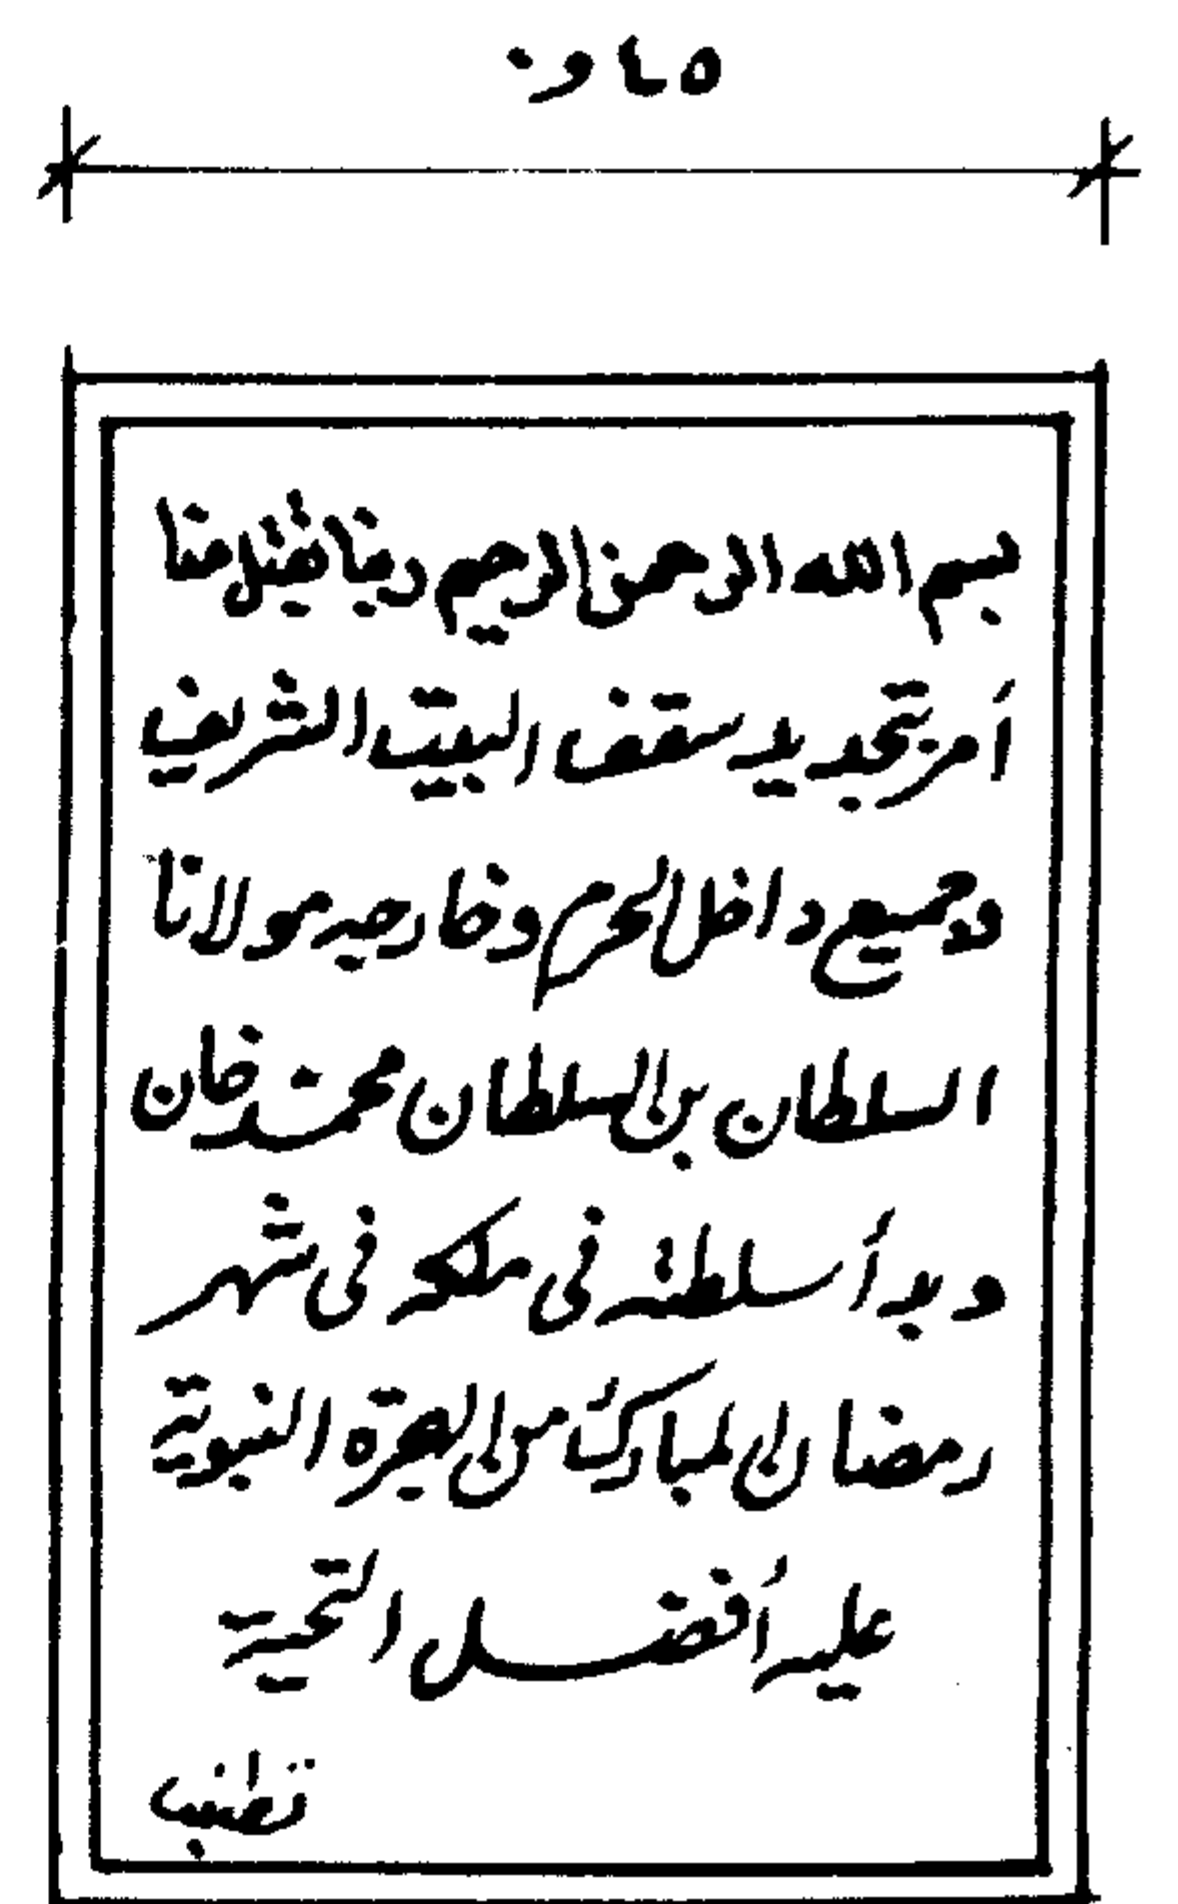 ٤٥و٠
بسم الله الرحمن الرحيم ربنا تقبل منا
أمر بتجديد سقف البيت الشريف
وجميع داخل الحرم وخارجه مولانا
السلطان بن السلطان محمد خان
وبدأ سلطنة فى مكه فى شهر
رمضان المبارك من الهجرة النبوية
عليه أفضل التحية